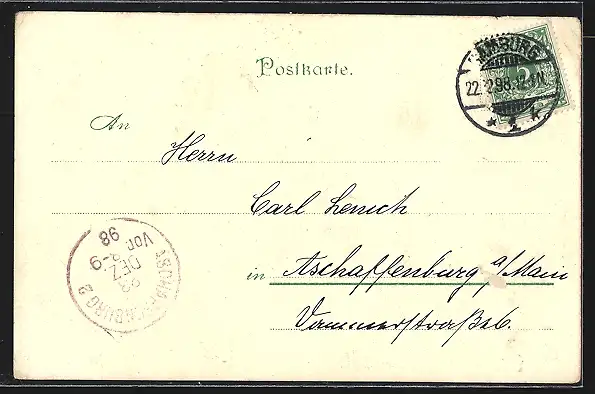 Postkarte.
HAMBURG
22.12.98.12-1N.
* 1 k
An
Herrn
Carl Lenich
in Aschaffenburg a/Main
ASCHAFFENBURG 2
23
DEZ
VOR. 8-9
98